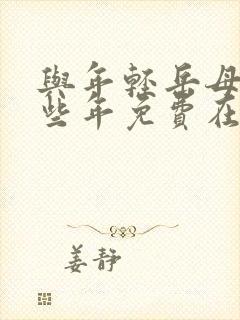 與年輕岳母
些年免費在
姜靜